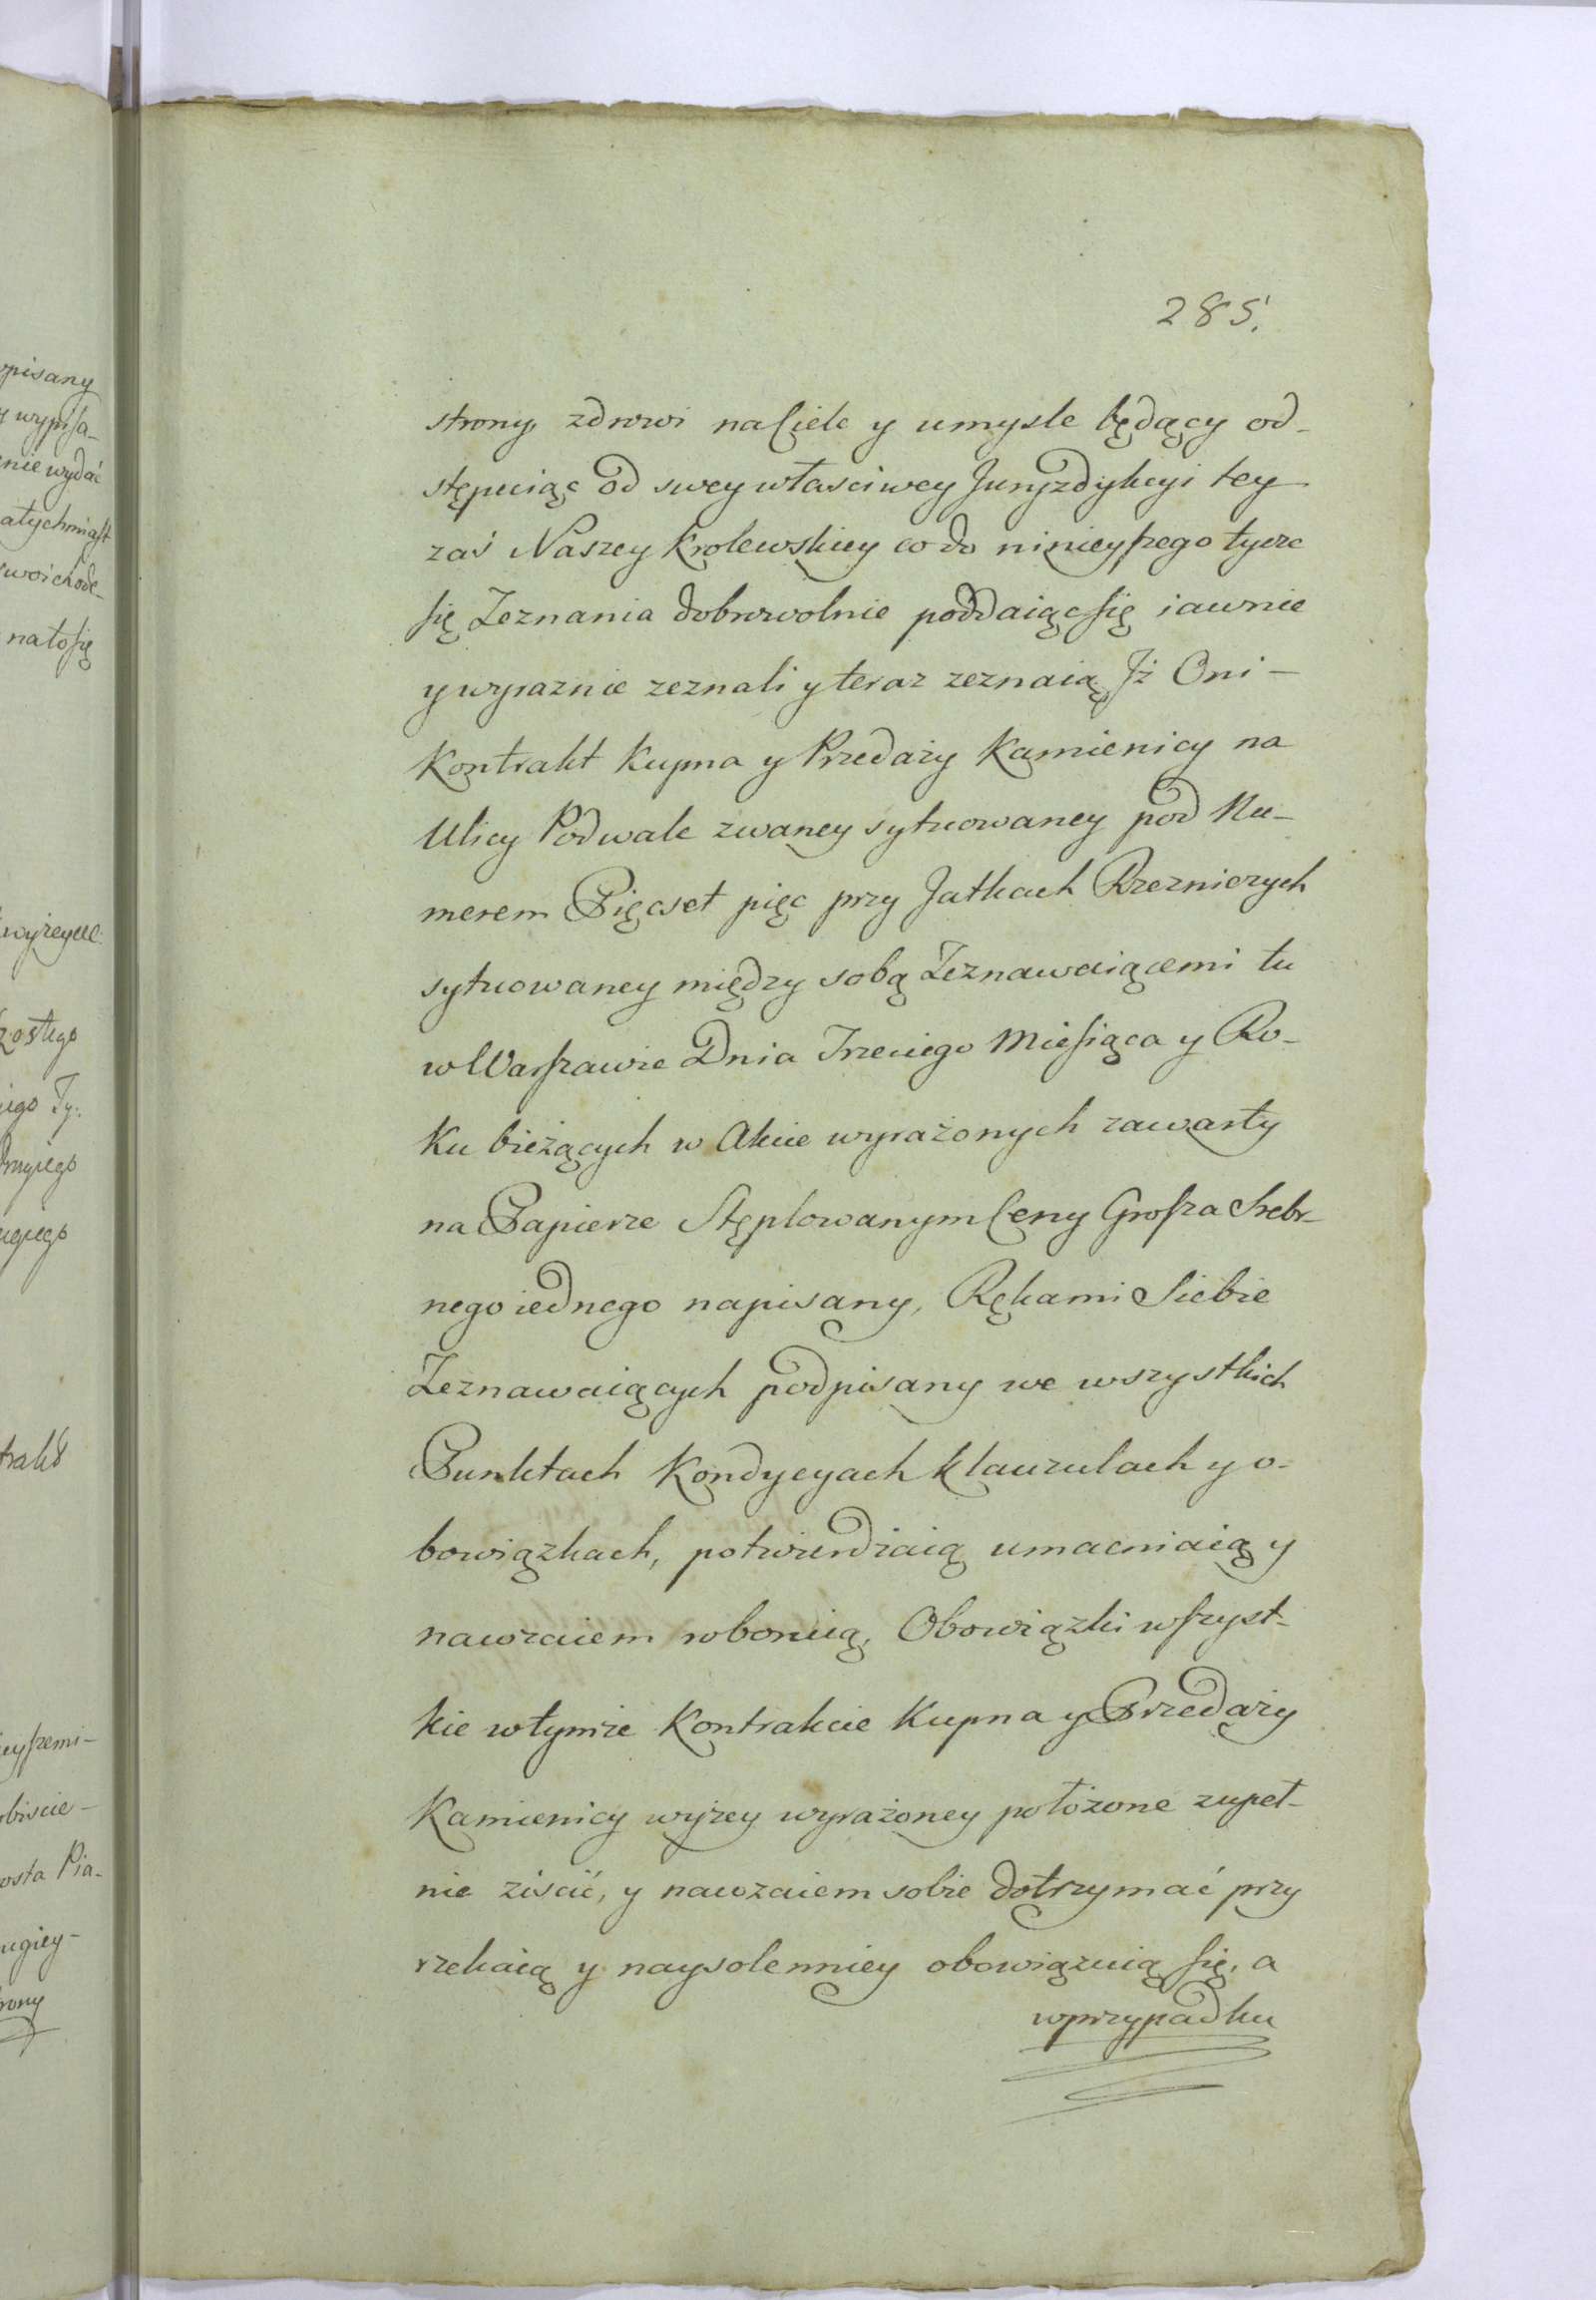 285.
strony, zdrowi na Ciele y umysle będący od-
stępuiąc od swey własciwey Juryzdykcyi tey
zaś Naszey Krolewskiey co do ninieyszego tycze
się Zeznania dobrowolnie poddaiąc się iawnie
y wyraznie zeznali y teraz zeznaią, Jż Oni -
Kontrakt Kupna y Przedaży Kamienicy na
Ulicy Podwale zwaney sytuowaney pod Nu-
merem Pięcset pięc przy Jatkach Rzezniczych
sytuowaney między sobą Zeznawaiącemi tu
w Warszawie Dnia Trzeciego Miesiąca y Ro-
ku bieżących w Akcie wyrażonych zawarty
na Papierze Stęplowanym Ceny Grosza Srebr-
nego iednego napisany, Rękami Siebie
Zeznawaiących podpisany we wszystkich
Punktach Kondycyach klauzulach y o-
bowiązkach, potwierdzaią umacniaią y
nawzaiem roboruią, Obowiązki wszyst-
kie w tymże Kontrakcie Kupna y Przedaży
Kamienicy wyżey wyrażoney położone zupeł-
nie ziscić, y nawzaiem sobie dotrzymać przy
rzekaią y naysolenniey obowiązuią się, a
w przypadku